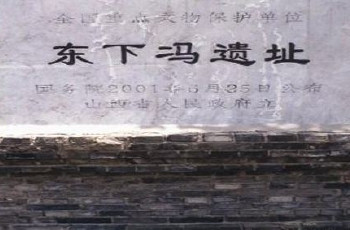 全国重点文物保护单位
东下冯遗址
国务院2001年6月25日公布
山西省人民政府立